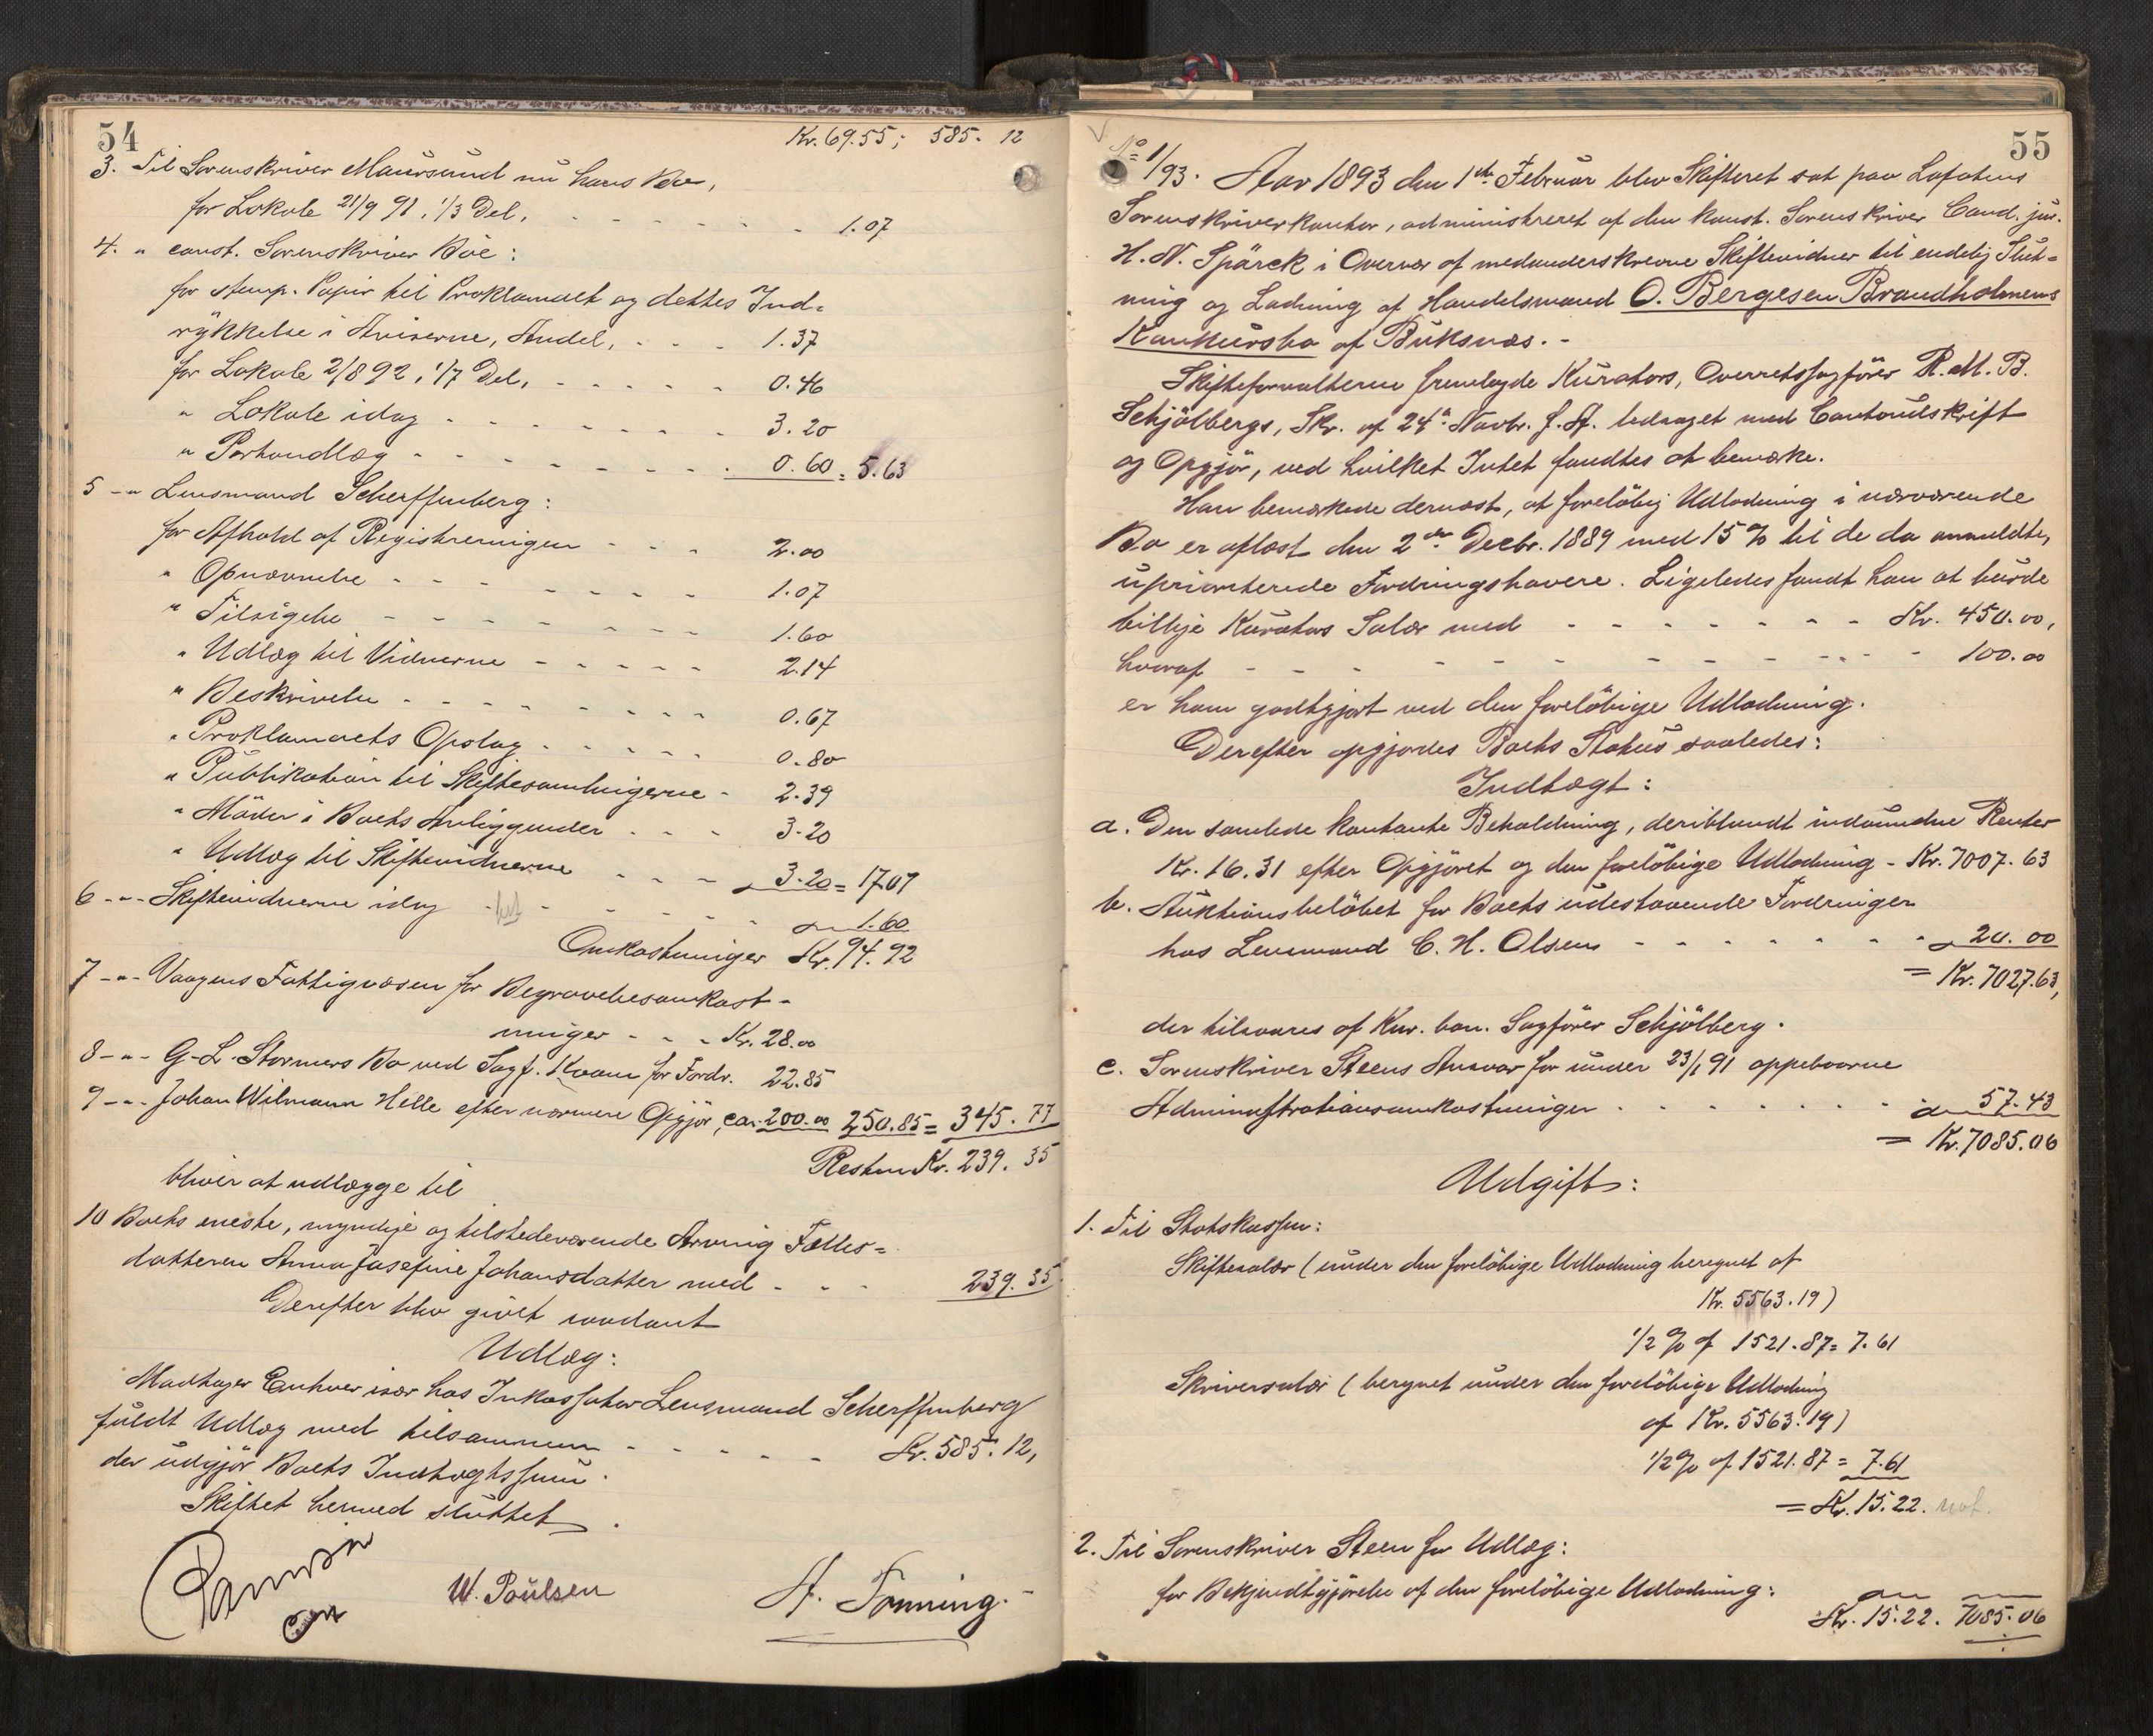 54
Kr. 69.55; 585. 12
3. Til Sorenskriver Maursund nu hans Bo,
for Lokale 21/9 91, 1/3 Del, - - - - - 1.07
4. " const. Sorenskriver Böe:
for stemp. Papir til Proklamaet og dettes Ind-
rykkelse i Aviserne, Andel, - - - 1.37
for Lokale 2/8 92, 1/7 Del, - - - - - 0.46
" Lokale idag - - - - - - - 3.20
" Forhandlæg - - - - - - - - 0.60 = 5.63
5 - " Lensmand Scheffenberg:
for Afhold af Registreringen - - - 2.00
" Opnævnelse - - - - - - - 1.07
" Tilsigelse - - - - - - - - 1.60
" Udlæg til Vidnerne - - - - - 2.14
" Beskrivelse - - - - - - - - 0.67
" Proklamaets Opslag - - - - - 0.80
" Publikation til Skiftesamlingerne - 2.39
" Möder i Boets Anliggender - - - 3.20
" Udlæg til Skiftevidnerne - - - 3.20 = 17.07
6 - " - Skiftevidnerne idag - - - - - - 1.60
Omkostninger Kr. 94.92
7 - " - Vaagens Fattigvæsen for Begravelsesomkost-
ninger - - - Kr. 28.00
8 - " - G. L. Stormers Bo ved Sagf. Kvaen for Fordr. 22.85
9 - " - Johan Wilmann Helle efter nærmere Opgjör, ca. 200.00 250.85 = 345.77
Resten Kr. 239. 35
bliver at udlægge til
10 Boets eneste, myndige og tilstedeværende Arving Fælles-
datteren Anna Josefine Johansdatter med - - - 239.35
Derefter blev givet saadant
Udlæg:
Modtager Enhver især hos Inkassator Lensmand Scheffenberg
fuldt Udlæg med tilsammen - - - - - Kr. 585. 12,
der udgjör Boets Indtægtssum.
Skiftet hermed sluttet.
W. Poulsen
A. Tönning.
55
No 1/93. Aar 1893 den 1ste Februar blev Skifteret sat paa Lofotens
Sorenskriverkontor, administreret af den konst. Sorenskriver Cand. jur.
H. N. Spärck i Overvær af medunderskrevne Skiftevidner til endelig Slut-
ning og Lodning af Handelsmand O. Bergesen Brandholmens
Konkursbo af Buksnæs. -
Skifteforvalteren fremlagde Kurators, Overretssagförer R. M. B.
Schjölbergs, Skr. af 24de Novbr. f. A. ledsaget med Contoudskrift
og Opgjör, ved hvilket Intet fandtes at bemærke.
Han bemærkede dernæst, at forelöbig Udlodning i nærværende
Bo er oplæst den 2den Decbr. 1889 med 15 % til de da anmeldte,
uprioriterede Fordringshavere. Ligeledes fandt han at burde
billige Kurators Salær med - - - - - - - Kr. 450.00,
hvoraf - - - - - - - - - - - 100.00
er ham godtgjort ved den forelöbige Udlodning.
Derefter opgjordes Boets Status saaledes:
Indtægt:
a. Den samlede kontante Beholdning, deriblandt indvundne Renter
Kr. 16.31 efter Opgjöret og den forelöbige Udlodning - Kr. 7007.63
b. Auktionsbelöbet for Boets udestaaende Fordringer
hos Lensmand C. H. Olsen - - - - - - - 20.00
= Kr. 7027.63,
der tilsvares af Kur. bon. Sagförer Schjölberg.
c. Sorenskriver Steens Ansvar for under 23/1 91 oppebaarne
Administrationsomkostninger - - - - - - - 57.43
= Kr. 7085.06
Udgift:
1. Til Statskassen:
Skiftesalær (under den forelöbige Udlodning beregnet af
Kr. 5563.19)
1/2 % af 1521.87 = 7.61
Skriversalær (beregnet under den forelöbige Udlodning
af Kr. 5563.19)
1/2 % af 1521.87 = 7.61
= Kr. 15.22. not.
2. Til Sorenskriver Steen for Udlæg:
for Bekjendtgjörelse af den forelöbige Udlodning:
Kr. 15.22. 7085.06